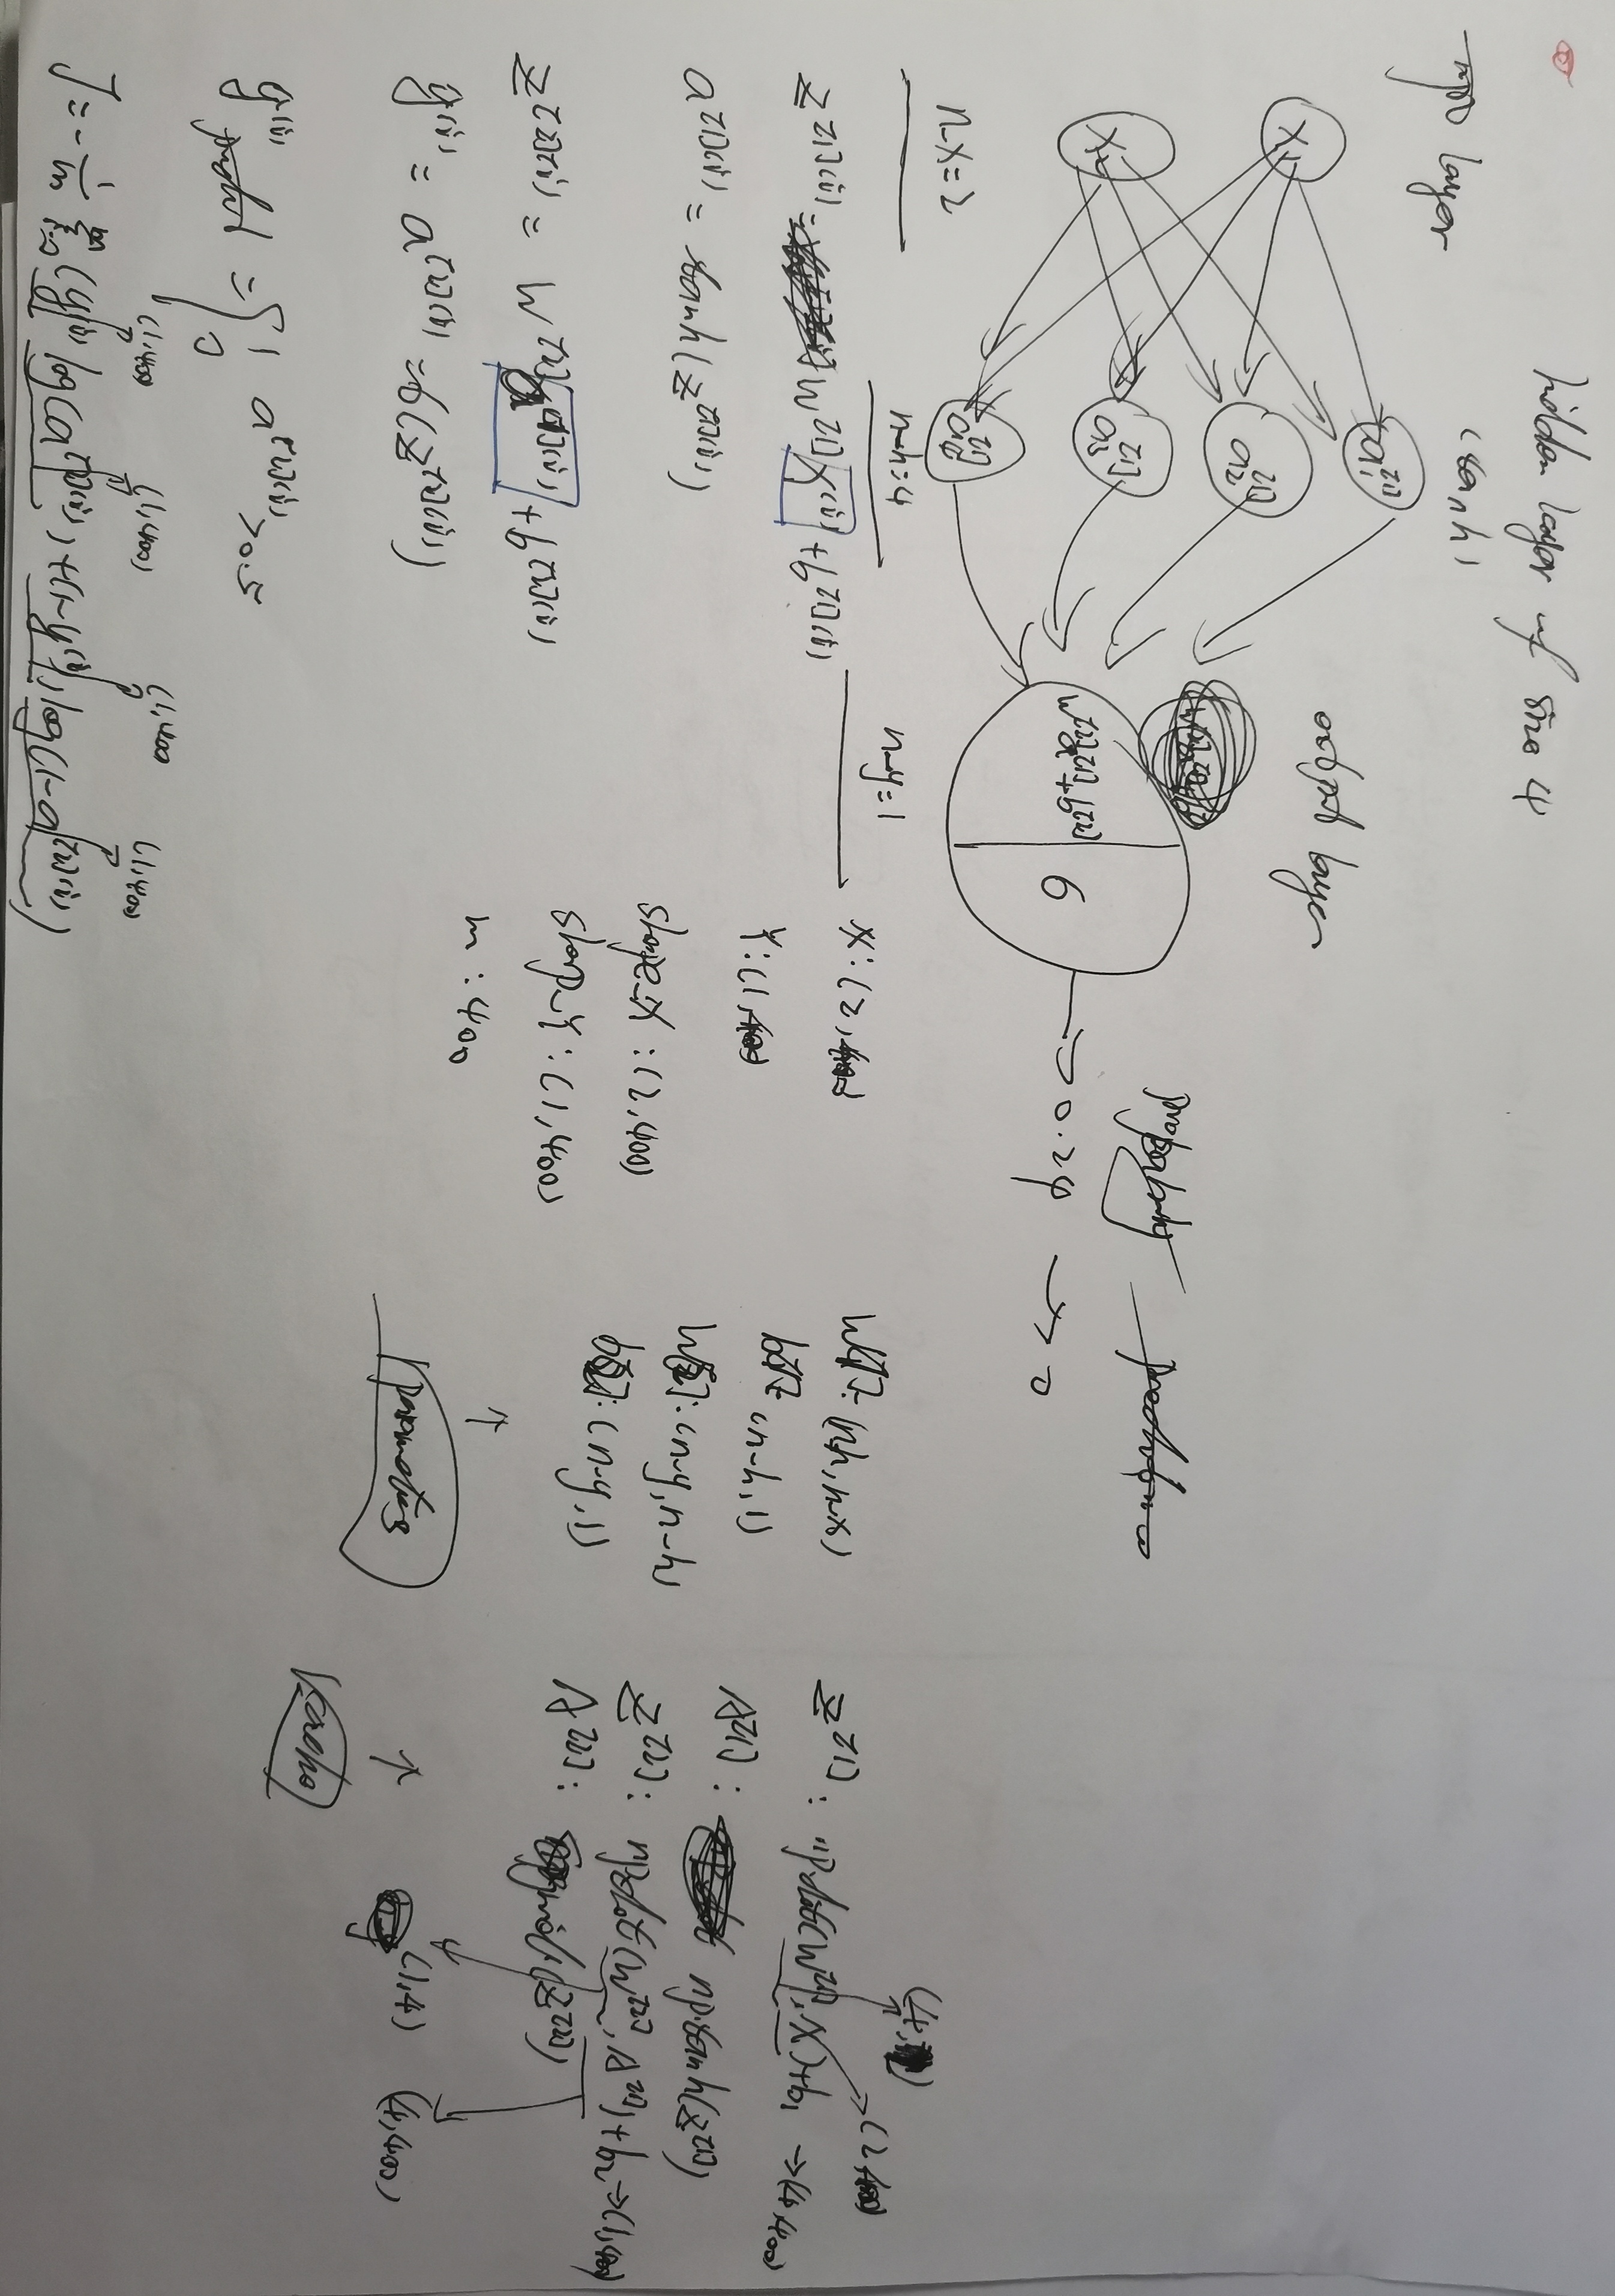 hidden layer of size 4
input layer
(tanh)
output layer
x₁
x₂
a₁^[1]
a₂^[1]
a₃^[1]
a₄^[1]
w^[2]a^[1]+b^[2]
σ
→ 0.24 → 0
probability
prediction
n-x=2
n-h=4
n-y=1
z^[1](i) = W^[1]x^(i) + b^[1](i)
a^[1](i) = tanh(z^[1](i))
z^[2](i) = W^[2]a^[1](i) + b^[2](i)
ŷ^(i) = a^[2](i) = σ(z^[2](i))
y^(i) predict = { 1 a^[2](i) > 0.5
0
(1,400) (1,400) (1,400) (1,400)
J = - 1/m Σ (y^(i) log(a^[2](i)) + (1-y^(i)) log(1-a^[2](i)))
X: (2,400)
Y: (1,400)
shape-X: (2,400)
shape-Y: (1,400)
m: 400
W[1]: (n-h, n-x)
b[1]: (n-h, 1)
W[2]: (n-y, n-h)
b[2]: (n-y, 1)
↑
parameters
(2,400)
z^[1]: np.dot(W^[1], X)+b₁ → (4,400)
A^[1]: np.tanh(z^[1])
z^[2]: np.dot(W^[2], A^[1])+b₂ → (1,400)
A^[2]: (z^[2])
↑
(1,4) (4,400)
cache